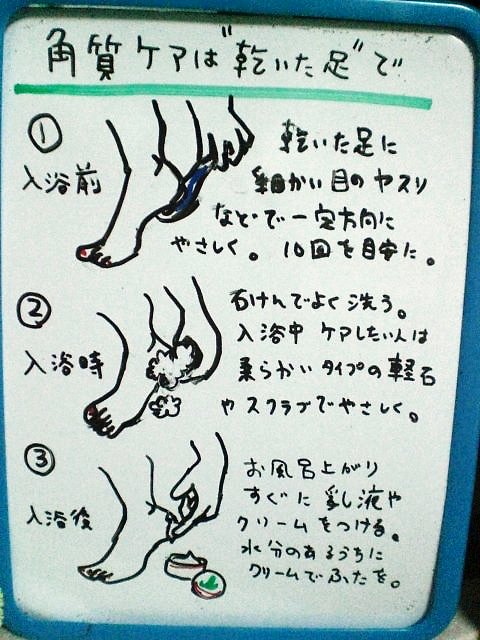 角質ケアは"乾いた足"で
①
入浴前
乾いた足に
細かい目のヤスリ
などで一定方向に
やさしく。10回を目安に。
②
入浴時
石けんでよく洗う。
入浴中 ケアしたい人は
柔らかいタイプの軽石
やスクラブでやさしく。
③
入浴後
お風呂上がり
すぐに乳液や
クリームをつける。
水分のあるうちに
クリームでふたを。